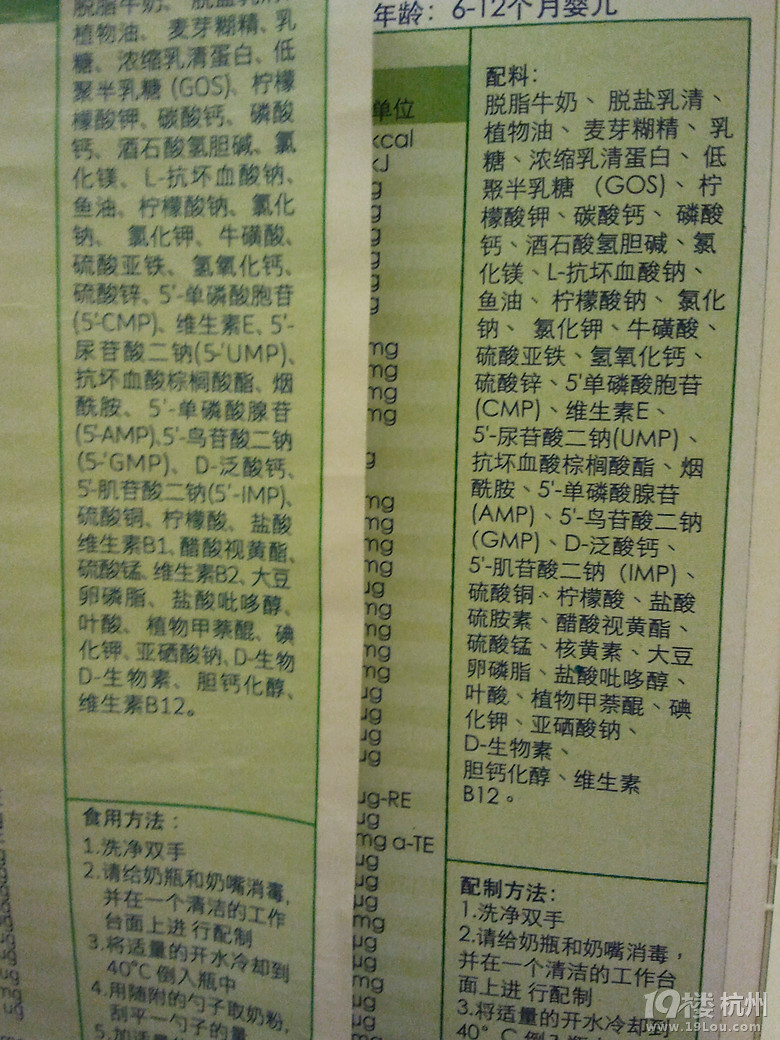 脱脂牛奶、脱盐乳清、
植物油、麦芽糊精、乳
糖、浓缩乳清蛋白、低
聚半乳糖(GOS)、柠
檬酸钾、碳酸钙、磷酸
钙、酒石酸氢胆碱、氯
化镁、L-抗坏血酸钠、
鱼油、柠檬酸钠、氯化
钠、氯化钾、牛磺酸、
硫酸亚铁、氢氧化钙、
硫酸锌、5'-单磷酸胞苷
(5'CMP)、维生素E、5'-
尿苷酸二钠(5-'UMP)、
抗坏血酸棕榈酸酯、烟
酰胺、5'-单磷酸腺苷
(5'AMP)、5'-鸟苷酸二钠
(5-'GMP)、D-泛酸钙、
5'-肌苷酸二钠(5'-IMP)、
硫酸铜、柠檬酸、盐酸
维生素B1、醋酸视黄酯、
硫酸锰、维生素B2、大豆
卵磷脂、盐酸吡哆醇、
叶酸、植物甲萘醌、碘
化钾、亚硒酸钠、D-生物
D-生物素、胆钙化醇、
维生素B12。
食用方法：
1.洗净双手
2.请给奶瓶和奶嘴消毒，
并在一个清洁的工作
台面上进 行配制
3.将适量的开水冷却到
40°C 倒入瓶中
4.用随附的勺子取奶粉，
刮平一勺子的量
年龄：6-12个月婴儿
单位
kcal
kJ
g
g
g
g
g
g
mg
mg
mg
mg
g
mg
mg
mg
mg
μg
mg
mg
mg
mg
μg
μg
μg
μg
μg-RE
μg
mg a-TE
μg
μg
μg
mg
μg
μg
mg
μg
μg
配料：
脱脂牛奶、脱盐乳清、
植物油、麦芽糊精、乳
糖、浓缩乳清蛋白、低
聚半乳糖（GOS）、柠
檬酸钾、碳酸钙、磷酸
钙、酒石酸氢胆碱、氯
化镁、L-抗坏血酸钠、
鱼油、柠檬酸钠、氯化
钠、氯化钾、牛磺酸、
硫酸亚铁、氢氧化钙、
硫酸锌、5'单磷酸胞苷
(CMP)、维生素E、
5'-尿苷酸二钠(UMP)、
抗坏血酸棕榈酸酯、烟
酰胺、5'-单磷酸腺苷
(AMP)、5'-鸟苷酸二钠
(GMP)、D-泛酸钙、
5'-肌苷酸二钠（IMP)、
硫酸铜、柠檬酸、盐酸
硫胺素、醋酸视黄酯、
硫酸锰、核黄素、大豆
卵磷脂、盐酸吡哆醇、
叶酸、植物甲萘醌、碘
化钾、亚硒酸钠、
D-生物素、
胆钙化醇、维生素
B12。
配制方法：
1.洗净双手
2.请给奶瓶和奶嘴消毒，
并在一个清洁的工作台
面上进 行配制
3.将适量的开水冷却到
40°C 倒入瓶
19楼杭州
www.19lou.com